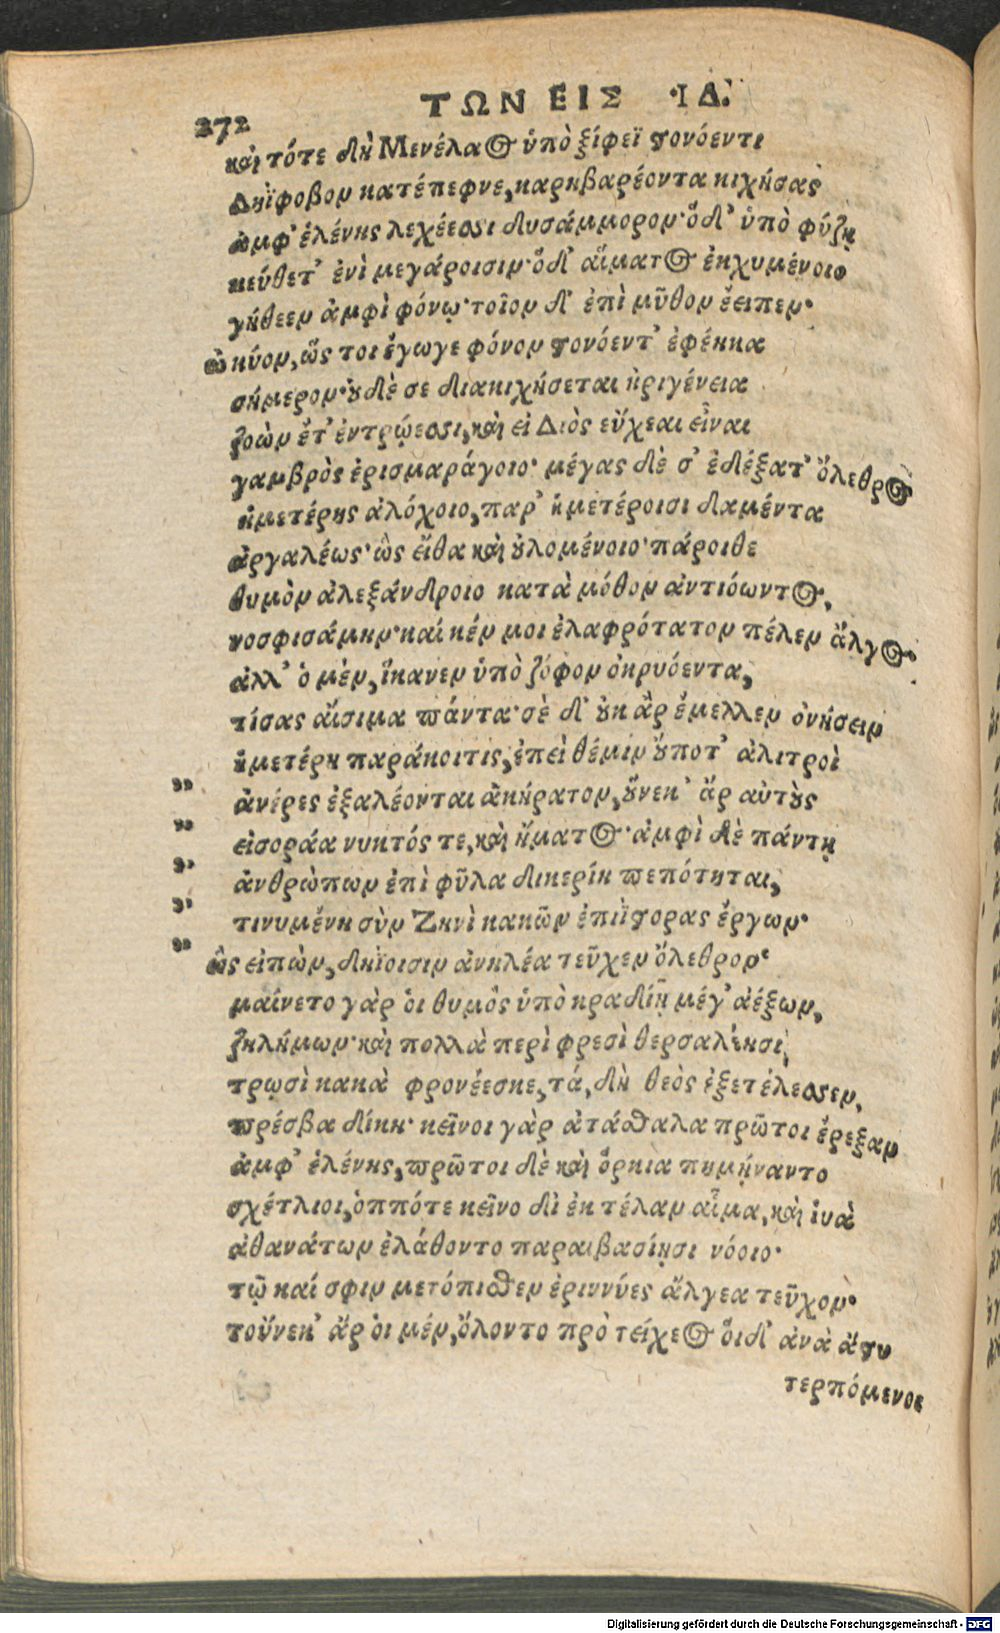 272
ΤΩΝ ΕΙΣ ΙΔ.
καὶ τότε δὴ Μενέλαος ὑπὸ ξίφεϊ στονόεντι
Δηΐφοβον κατέπεφνε, καρηβαρέοντα κιχήσας
ἀμφ' ἑλένης λεχέεσσι δυσάμμορον· ὁ δ' ὑπὸ φύζῃ
κεύθετ' ἐνὶ μεγάροισιν· ὁ δ' αἵματος ἐκχυμένοιο
γήθεεν ἀμφὶ φόνῳ· τοῖον δ' ἐπὶ μῦθον ἔειπεν·
ὦ κύον, ὥς τοι ἔγωγε φόνον στονόεντ' ἐφέηκα
σήμερον· οὐδὲ σε διακιχήσεται ἠριγένεια
ζοὼν ἔτ' ἐν τρώεσσι, καὶ εἰ Διὸς εὔχεαι εἶναι
γαμβρὸς ἐρισμαράγοιο· μέγας δὲ σ' ἐδέξατ' ὄλεθρος
ἡμετέρης ἀλόχοιο, παρ' ἡμετέροισι δαμέντα
ἀργαλέως· ὡς εἴθα καὶ οὐλομένοιο· πάροιθε
θυμὸν ἀλεξάνδροιο κατὰ μόθον ἀντιόωντος,
νοσφισάμην· καί κέν μοι ἐλαφρότατον πέλεν ἄλγος·
ἀλλ' ὁ μὲν, ἵκανεν ὑπὸ ζόφον ὀκρυόεντα,
τίσας αἴσιμα πάντα· σὲ δ' οὐκ ἂρ ἔμελλεν ὀνήσειν
ἡμετέρη παράκοιτις, ἐπεὶ θέμιν οὔποτ' ἀλιτροὶ
ἀνέρες ἐξαλέονται ἀκήρατον, οὕνεκ' ἄρ αὐτοὺς
εἰσοράα νυκτός τε, καὶ ἤματος· ἀμφὶ δὲ πάντῃ
ἀνθρώπων ἐπὶ φῦλα διηερίη πεπότηται,
τινυμένη σὺν Ζηνὶ κακῶν ἐπιΐστορας ἔργων·
ὣς εἰπὼν, δηΐοισιν ἀνηλέα τεῦχεν ὄλεθρον·
μαίνετο γὰρ οἱ θυμὸς ὑπὸ κραδίῃ μέγ' ἀέξων,
ζηλήμων· καὶ πολλὰ περὶ φρεσὶ θερσαλέῃσι,
τρωσὶ κακὰ φρονέεσκε, τά, δὴ θεὸς ἐξετέλεσσεν,
πρέσβα δίκη· κεῖνοι γὰρ ἀτάσθαλα πρῶτοι ἔρεξαν
ἀμφ' ἑλένης, πρῶτοι δὲ καὶ ὅρκια πημήναντο
σχέτλιοι, ὁππότε κεῖνο δὶ ἐκ τέλαν αἷμα, καὶ ἱνὰ
ἀθανάτων ἐλάθοντο παραιβασίῃσι νόοιο·
τῷ καί σφιν μετόπισθεν ἐριννύες ἄλγεα τεῦχον·
τοὔνεκ' ἄρ οἱ μὲν, ὄλοντο πρὸ τείχεος οἱ δ' ἀνὰ ἄστυ
τερπόμενοι
Digitalisierung gefördert durch die Deutsche Forschungsgemeinschaft - DFG